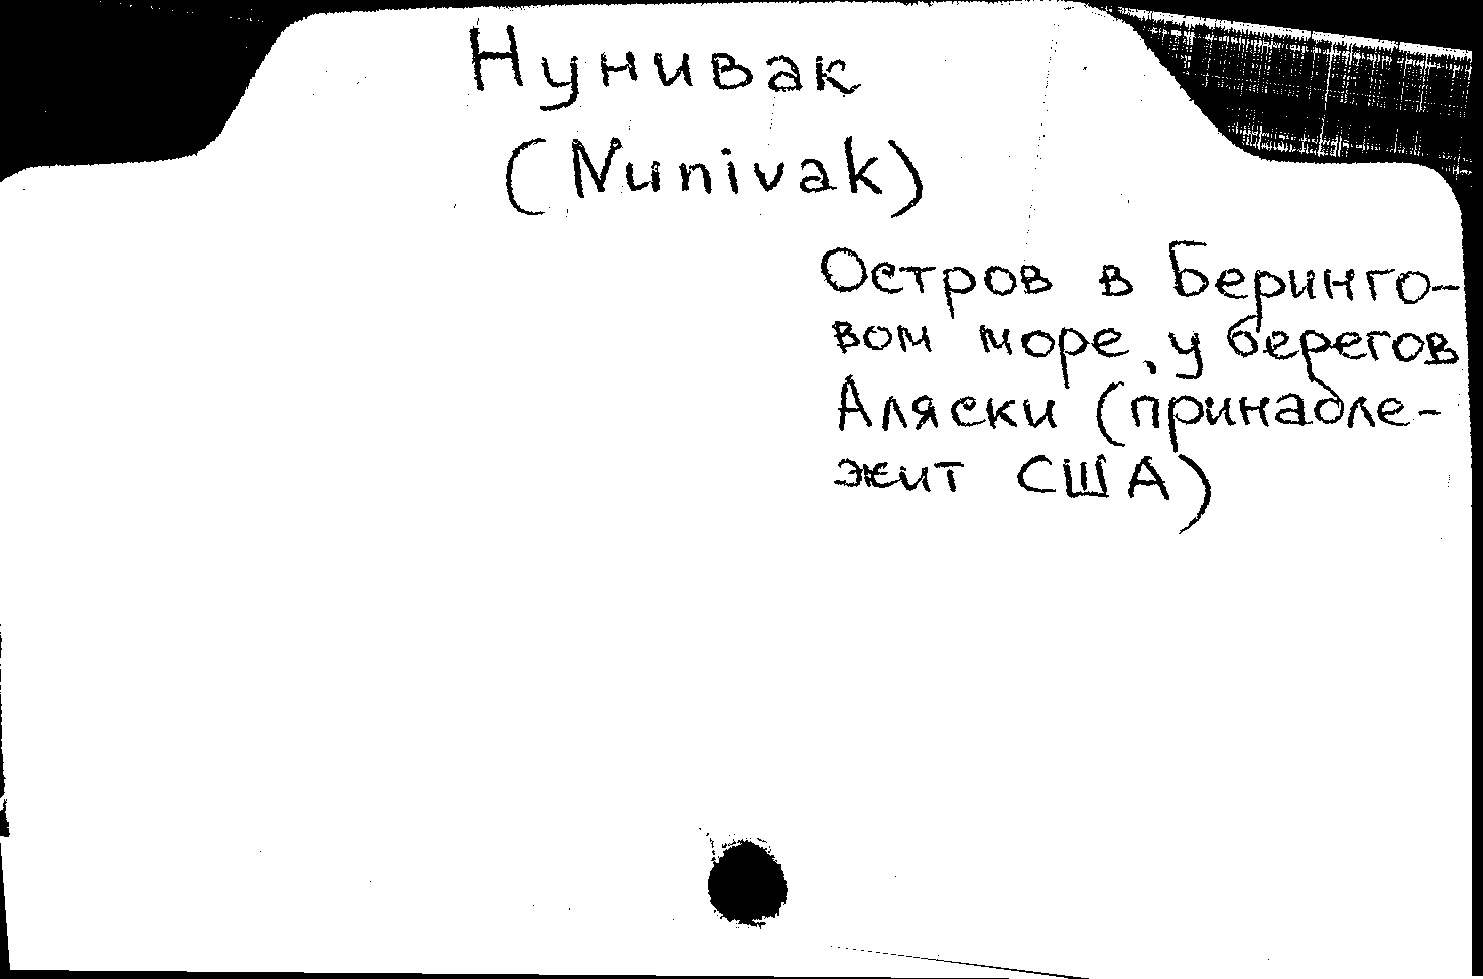 Нунивак
(Nunivak)
Остров в Беринго-
вом море, у берегов
Аляски (принадле-
жит США)